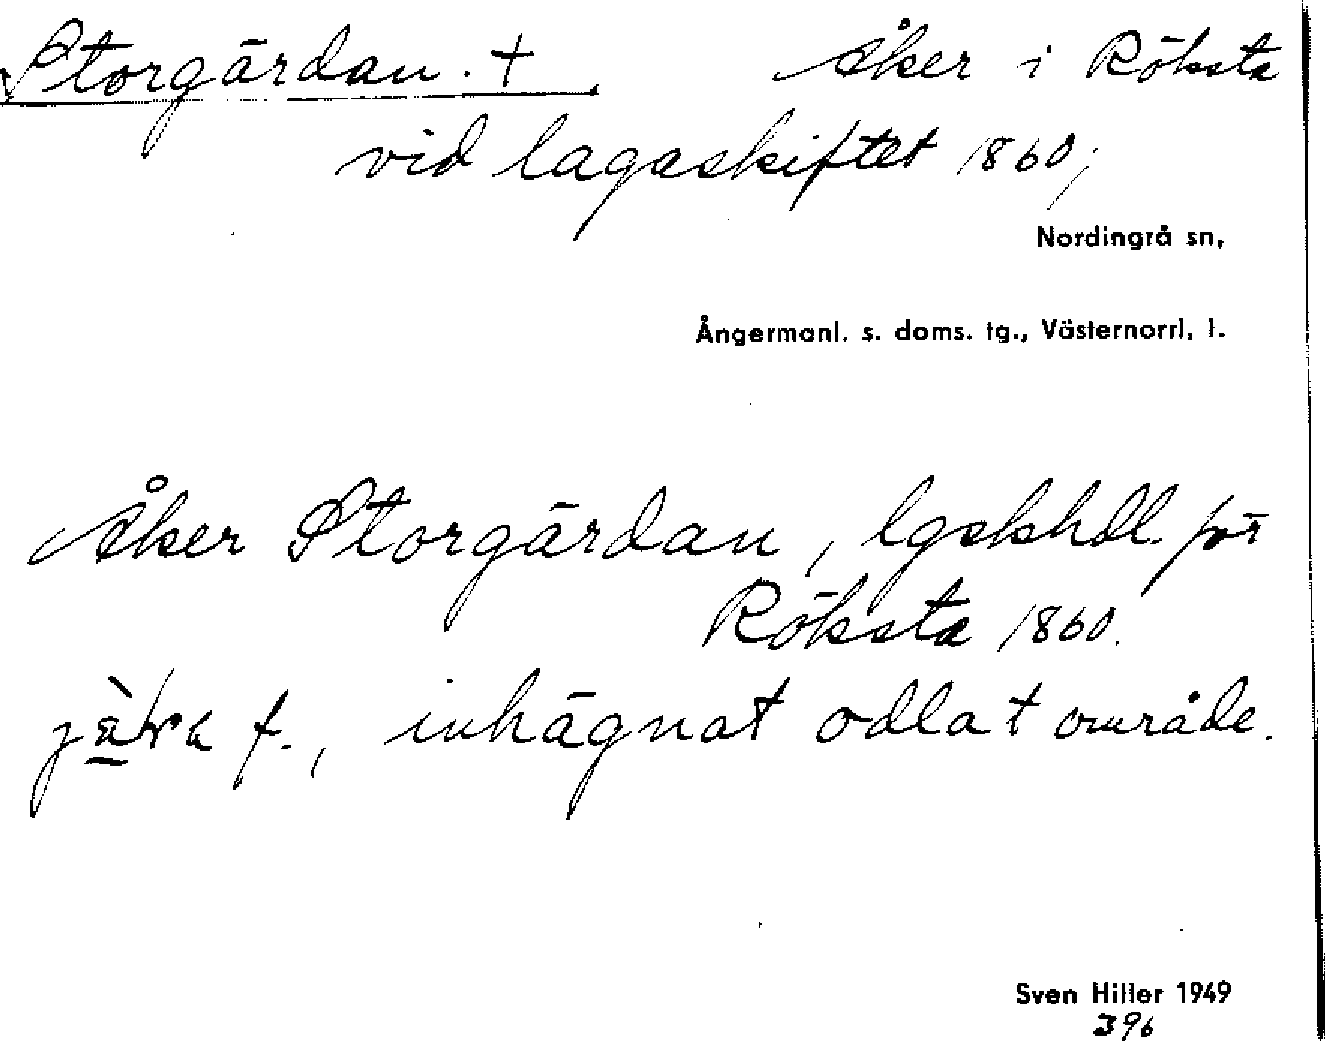 Storgärdan. + Åker i Röksta
vid lagaskiftet 1860;
Nordingrå sn,
Ångermanl. s. doms. tg., Västernorrl. l.
Åker Storgärdan, lgskhdl. för
Röksta 1860.
f., inhägnat odlat område.
Sven Hiller 1949
396